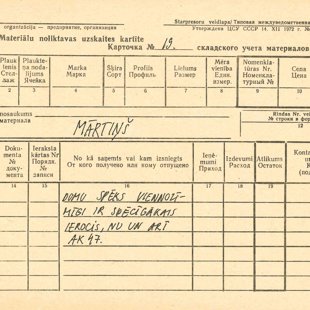 organizācija — предприятие, организация
Starpresoru veidlapa/Типовая междуведомственная
Утверждена ЦСУ СССР 14. XII 1972 г. №
Materiālu noliktavas uzskaites kartīte
Карточка № 19. складского учета материалов
Plaukts Стеллаж
Plaukteņa nodalījums Ячейка
Marka Марка
Šķira Сорт
Profils Профиль
Lielums Размер
Mēra vienība Един. измер.
Nomenklatūras Nr. Номенклатурный №
Cena Цена
4 5 6 7 8 9 10
nosaukums
материала
MĀRTIŅŠ
Rindas Nr. vei
№ строки в фор
12
Dokumenta № документа
Ieraksta kārtas Nr Порядк. № записи
No kā saņemts vai kam izsniegts
От кого получено или кому отпущено
Ieņēmumi Приход
Izdevumi Расход
Atlikums Остаток
14 15 16 17 18 19
DOMU SPĒKS VIENNOZĪ-
MĪGI IR SPĒCĪGĀKAIS
IEROCIS, NU UN ARĪ
AK 47.